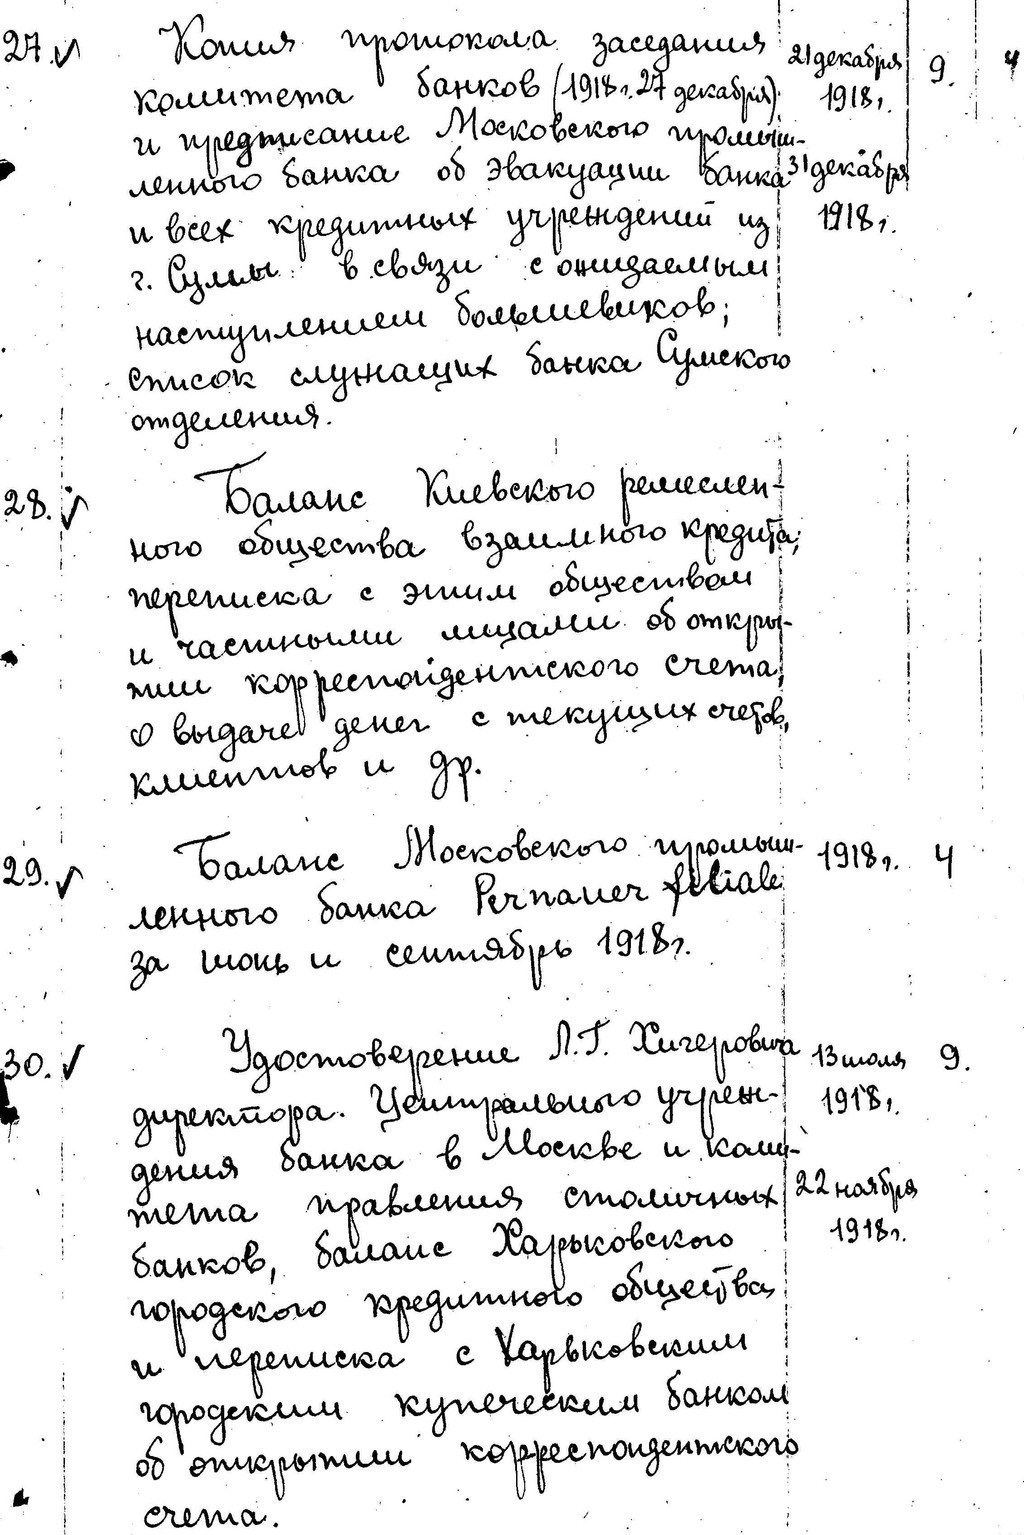 27. ✓ Копия протокола заседания 21 декабря 9. 4
комитета банков (1918 г. 27 декабря) 1918 г.
и предписание Московского промыш-
ленного банка об эвакуации банка 31 декабря
и всех кредитных учреждений из 1918 г.
г. Сумы в связи с ожидаемым
наступлением большевиков;
список служащих банка Сумского
отделения.
28. ✓ Баланс Киевского ремеслен-
ного общества взаимного кредита;
переписка с этим обществом
и частными лицами об откры-
тии корреспондентского счета,
о выдаче денег с текущих счетов,
клиентов и др.
29. ✓ Баланс Московского промыш- 1918 г. 4
ленного банка Pernauer filiale
за июнь и сентябрь 1918 г.
30. ✓ Удостоверение Л.Г. Хичеровича 13 июля 9.
директора. Центрального учреж- 1918 г.
дения банка в Москве и коми-
тета правления столичных 22 ноября
банков, баланс Харьковского 1918 г.
городского кредитного общества
и переписка с Харьковским
городским купеческим банком
об открытии корреспондентского
счета.